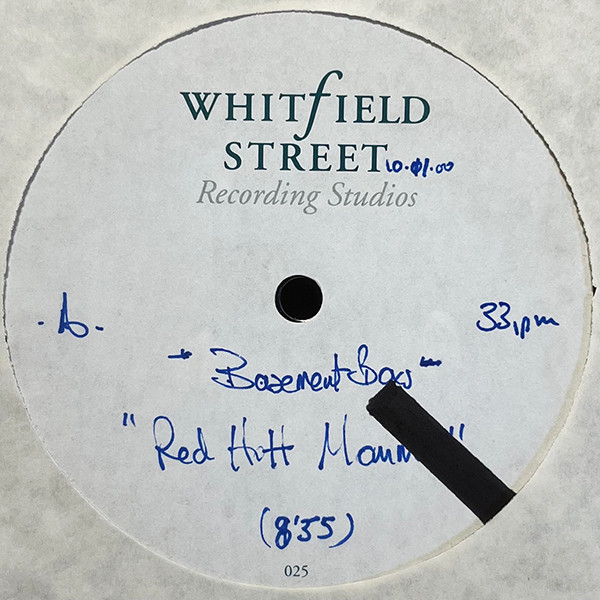 WHITFIELD
STREET 10.01.00
Recording Studios
-A- 33rpm
"Basement Boys"
"Red Hott
(8'35)
025